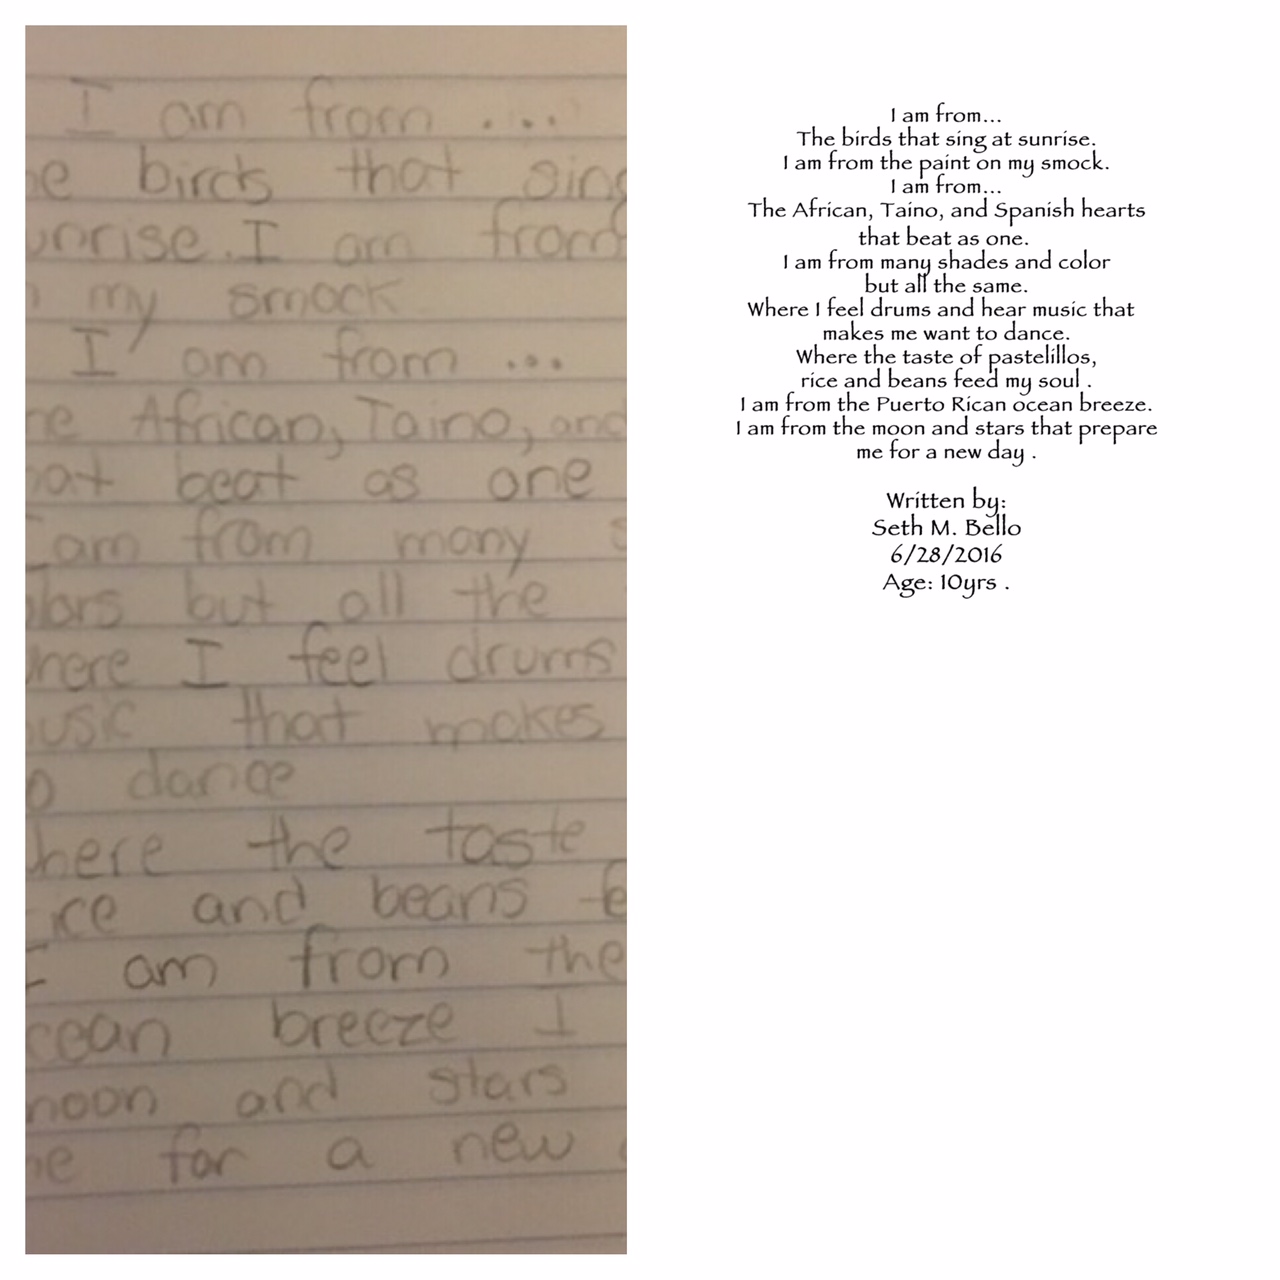 I am from ....
e birds that sing
unrise. I am from
my smock
I am from ...
he African, Taino, and
hat beat as one
I am from many s
olors but all the
here I feel drums
usic that makes
o dance
here the taste
ice and beans fe
I am from the
cean breeze I
moon and stars
me for a new
I am from...
The birds that sing at sunrise.
I am from the paint on my smock.
I am from...
The African, Taino, and Spanish hearts
that beat as one.
I am from many shades and color
but all the same.
Where I feel drums and hear music that
makes me want to dance.
Where the taste of pastelillos,
rice and beans feed my soul .
I am from the Puerto Rican ocean breeze.
I am from the moon and stars that prepare
me for a new day .
Written by:
Seth M. Bello
6/28/2016
Age: 10yrs .